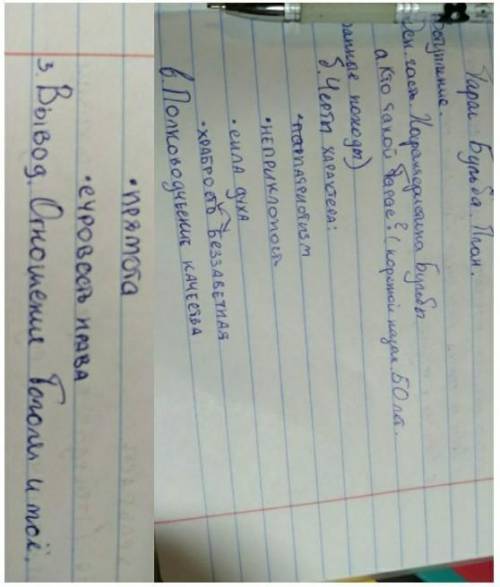 Тарас Бульба. План.
Вступление.
Осн. часть. Характеристика Бульбы
а. Кто такой Тарас? (кошевой казак. 50 лет.
ранные походы)
б. Черты характера:
• патриотизм
• неприклоность
• сила духа
• храбрость беззаветная
в Полководчьские качества
• прямота
• суровость нрава
3. Вывод. Отношение Гоголя и моё.